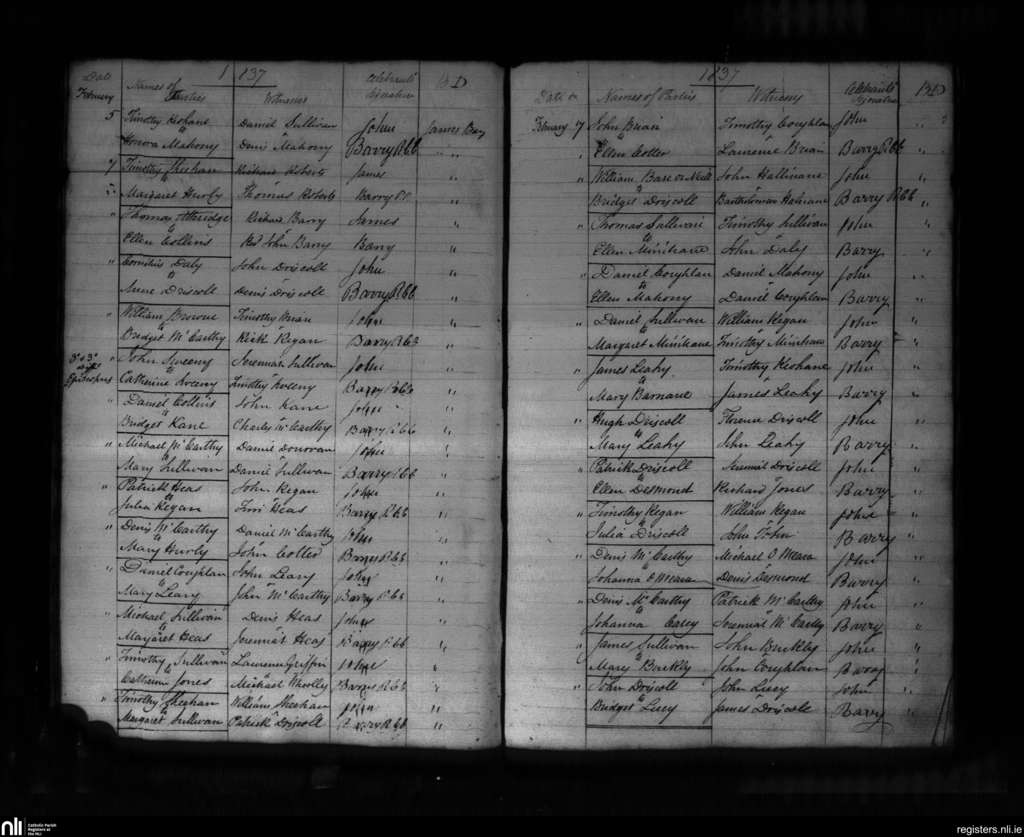 1837
Date Names of Parties Witnesses Celebrant's Signature B.D
February
5 Timothy Keohane Daniel Sullivan John James Barry
to
Honora Mahony Denis Mahony Barry R.C.C. " "
7 Timothy Sheehan Richard Roberts James
" Margaret Hurly Thomas Roberts Barry P.P. "
" Thomas Attridge Richard Barry James
to
Ellen Collins Rev John Barry Barry "
" Cornelius Daly John Driscoll John "
to
Anne Driscoll Denis Driscoll Barry R.C.C. "
" William Browne Timothy Brian John "
Bridget McCarthy Rick Regan Barry R.C.C. "
3d & 3d " John Sweeny Jeremiah Sullivan John "
to
Catherine Sweeny Timothy Sweeny Barry R.C.C. "
" Daniel Collins John Kane John "
to
Bridget Kane Charles McCarthy Barry R.C.C. "
" Michael McCarthy Daniel Donovan John "
to
Mary Sullivan Daniel Sullivan Barry R.C.C. "
" Patrick Heas John Regan John "
to
Julia Regan Heas Barry R.C.C. "
" Denis McCarthy Daniel McCarthy John "
to
Mary Hurly John Cotter Barry R.C.C. "
" Daniel Coughlan John Leary John "
to
Mary Leary John McCarthy Barry R.C.C. "
" Michael Sullivan Denis Heas John "
to
Margaret Heas Jeremiah Heas Barry R.C.C. "
" Timothy Sullivan Laurence Griffin John "
to
Catherine Jones Michael Barry R.C.C. "
" Timothy Sheehan William Sheehan John "
to
Margaret Sullivan Patrick Driscoll Barry R.C.C. "
1837
Date Names of Parties Witnesses Celebrant's Signature B&D
February 7 John Brian Timothy Coughlan John "
to
" Ellen Cotter Laurence Brian Barry R.C.C. "
" William Bare or Neill John Hallinane John
Bridget Driscoll Bartholomew Barry R.C.C. "
" Thomas Sullivan Timothy Sullivan John
to
Ellen Minihane John Daly Barry "
" Daniel Coughlan Daniel Mahony John "
to
Ellen Mahony Daniel Coughlan Barry "
" Daniel Sullivan William Regan John "
to
Margaret Minihane Timothy Minihane Barry "
" James Leahy Timothy Keohane John "
to
Mary Barnane James Leahy Barry "
" Hugh Driscoll Florence Driscoll John "
to
Mary Leahy John Leahy Barry "
" Patrick Driscoll Jeremiah Driscoll John "
to
Ellen Desmond Richard Jones Barry "
" Timothy Regan William Regan John "
to
Julia Driscoll John Barry "
" Denis McCarthy Michael O Meara John "
to
Johanna O Meara Denis Desmond Barry "
" Denis McCarthy Patrick McCarthy John "
to
Johanna Casey Jeremiah McCarthy Barry "
" James Sullivan John Buckly John "
to
Mary Buckly John Coughlan Barry "
" John Driscoll John Lucy John "
to
Bridget Lucy James Driscoll Barry
nli Catholic Parish Registers at the NLI
registers.nli.ie